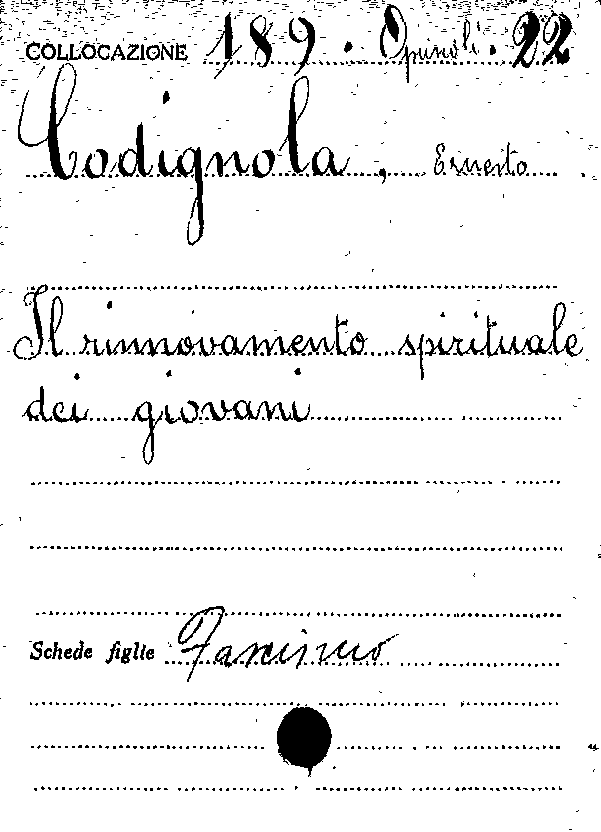 COLLOCAZIONE 189. Opuscoli. 22
Codignola, Ernesto
Il rinnovamento spirituale
dei giovani
Schede figlie Fascismo